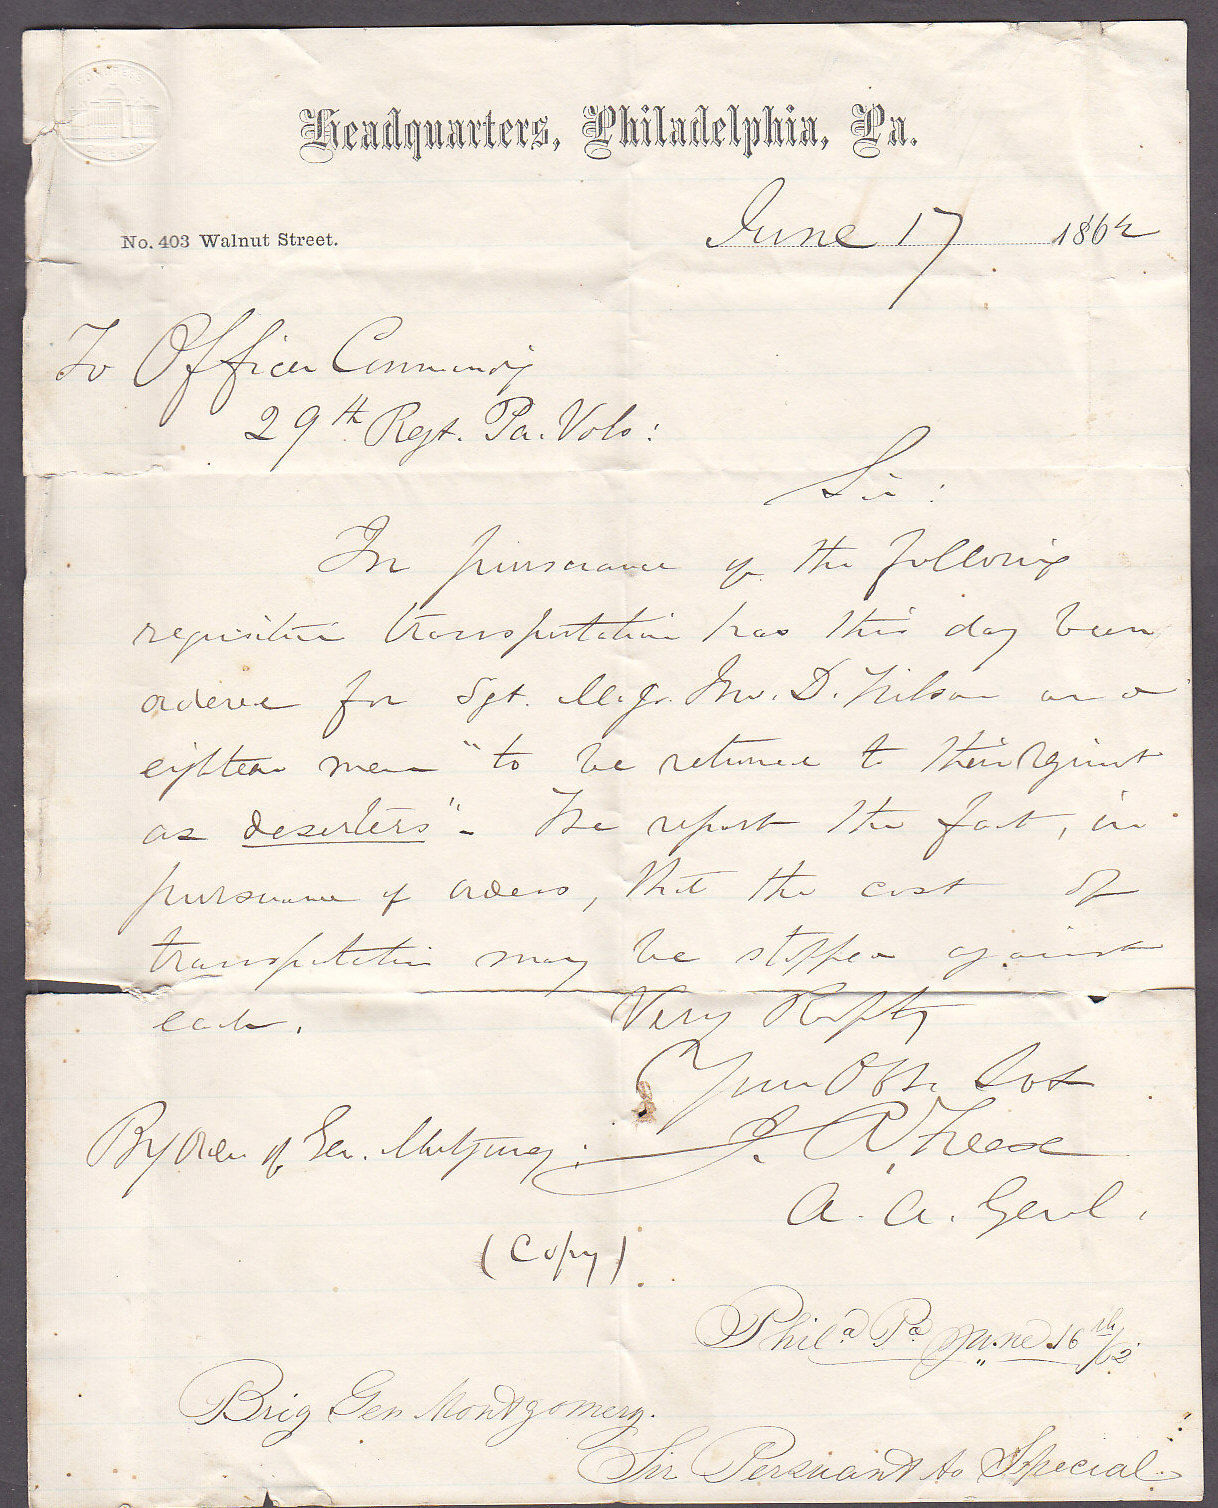 CONGRESS
Headquarters, Philadelphia, Pa.
No. 403 Walnut Street.
June 17 1862
To Officer Commandg
29th Regt. Pa. Vols:
Sir:
In pursuance of the following
requisition transportation has this day been
ordered for Sgt. Majr. Jno. D. Wilson and
eighteen men "to be returned to their regiment
as deserters". We report the fact, in
pursuance of orders, that the cost of
transportation may be stopped against
each. Very Respfty
Your Obt. Svt
By order of Gen. Montgomery: J. R.
A. A. Genl.
(Copy).
Phila Pa June 16th/62
Brig Gen Montgomery.
Sir Persuant to Special